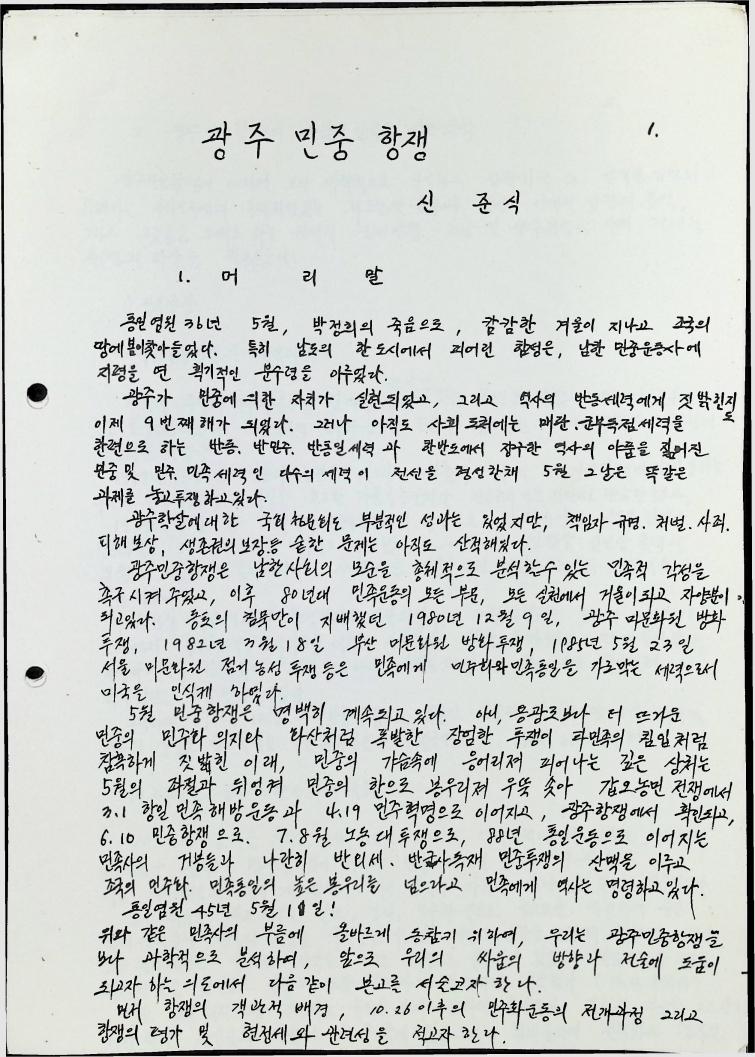 1.
광주 민중 항쟁
신 준 식
1. 머 리 말
통일염원 36년 5월, 박정희의 죽음으로, 캄캄한 겨울이 지나고 조국의
땅에 봄이 찾아들었다. 특히 남도의 한 도시에서 피어린 함성은, 남한 민중운동사에
지평을 연 획기적인 분수령을 이루었다.
광주가 민중에 의한 자치가 실현되었고, 그리고 역사의 반동세력에게 짓밟힌지도
이제 9번째 해가 되었다. 그러나 아직도 사회 도처에는 매판·군부독점세력을
관련으로 하는 반동. 반민주. 반통일세력과 한반도에서 장구한 역사의 아픔을 짊어진
민중 및 민주. 민족세력인 다수의 세력이 전선을 형성한채 5월 그날은 똑같은
과제를 놓고 투쟁하고 있다.
광주학살에 대한 국회 청문회도 부분적인 성과는 있었지만, 책임자 규명. 처벌. 사죄.
피해보상, 생존권의 보장등 숱한 문제는 아직도 산적해있다.
광주민중항쟁은 남한사회의 모순을 총체적으로 분석할수 있는 민족적 각성을
촉구시켜 주었고, 이후 80년대 민족운동의 모든 부문, 모든 실천에서 거울이 되고 자양분이
되고있다. 동토의 침묵만이 지배했던 1980년 12월 9일, 광주 미문화원 방화
투쟁, 1982년 3월 18일 부산 미문화원 방화투쟁, 1985년 5월 23일
서울 미문화원 점거 농성 투쟁등은 민족에게 민주화와 민족통일을 가로막는 세력으로서
미국을 인식케 하였다.
5월 민중항쟁은 명백히 계속되고 있다. 아니, 용광로보다 더 뜨거운
민중의 민주화 의지와 화산처럼 폭발한 장엄한 투쟁이 파민족의 침입처럼
참혹하게 짓밟힌 이래, 민중의 가슴속에 응어리져 피어나는 깊은 상처는
5월의 좌절과 뒤엉켜 민중의 한으로 봉우리져 우뚝 솟아 갑오농민 전쟁에서
3.1 항일 민족해방운동과 4.19 민주혁명으로 이어지고, 광주항쟁에서 확인되고,
6.10 민중항쟁으로. 7.8월 노동대투쟁으로, 88년 통일운동으로 이어지는
민족사의 거봉들과 나란히 반외세. 반군사독재 민중투쟁의 산맥을 이루고
조국의 민주화. 민족통일의 높은 봉우리를 넘으라고 민족에게 역사는 명령하고 있다.
통일염원 45년 5월 18일!
위와 같은 민족사의 부름에 올바르게 동참키 위하여, 우리는 광주민중항쟁을
보다 과학적으로 분석하여, 앞으로 우리의 싸움의 방향과 전술에 도움이
되고자 하는 의도에서 다음 같이 본고를 서술코자 한다.
먼저 항쟁의 객관적 배경, 10.26 이후의 민주화운동의 전개과정 그리고
항쟁의 평가 및 현정세와 관련성을 적고자 한다.